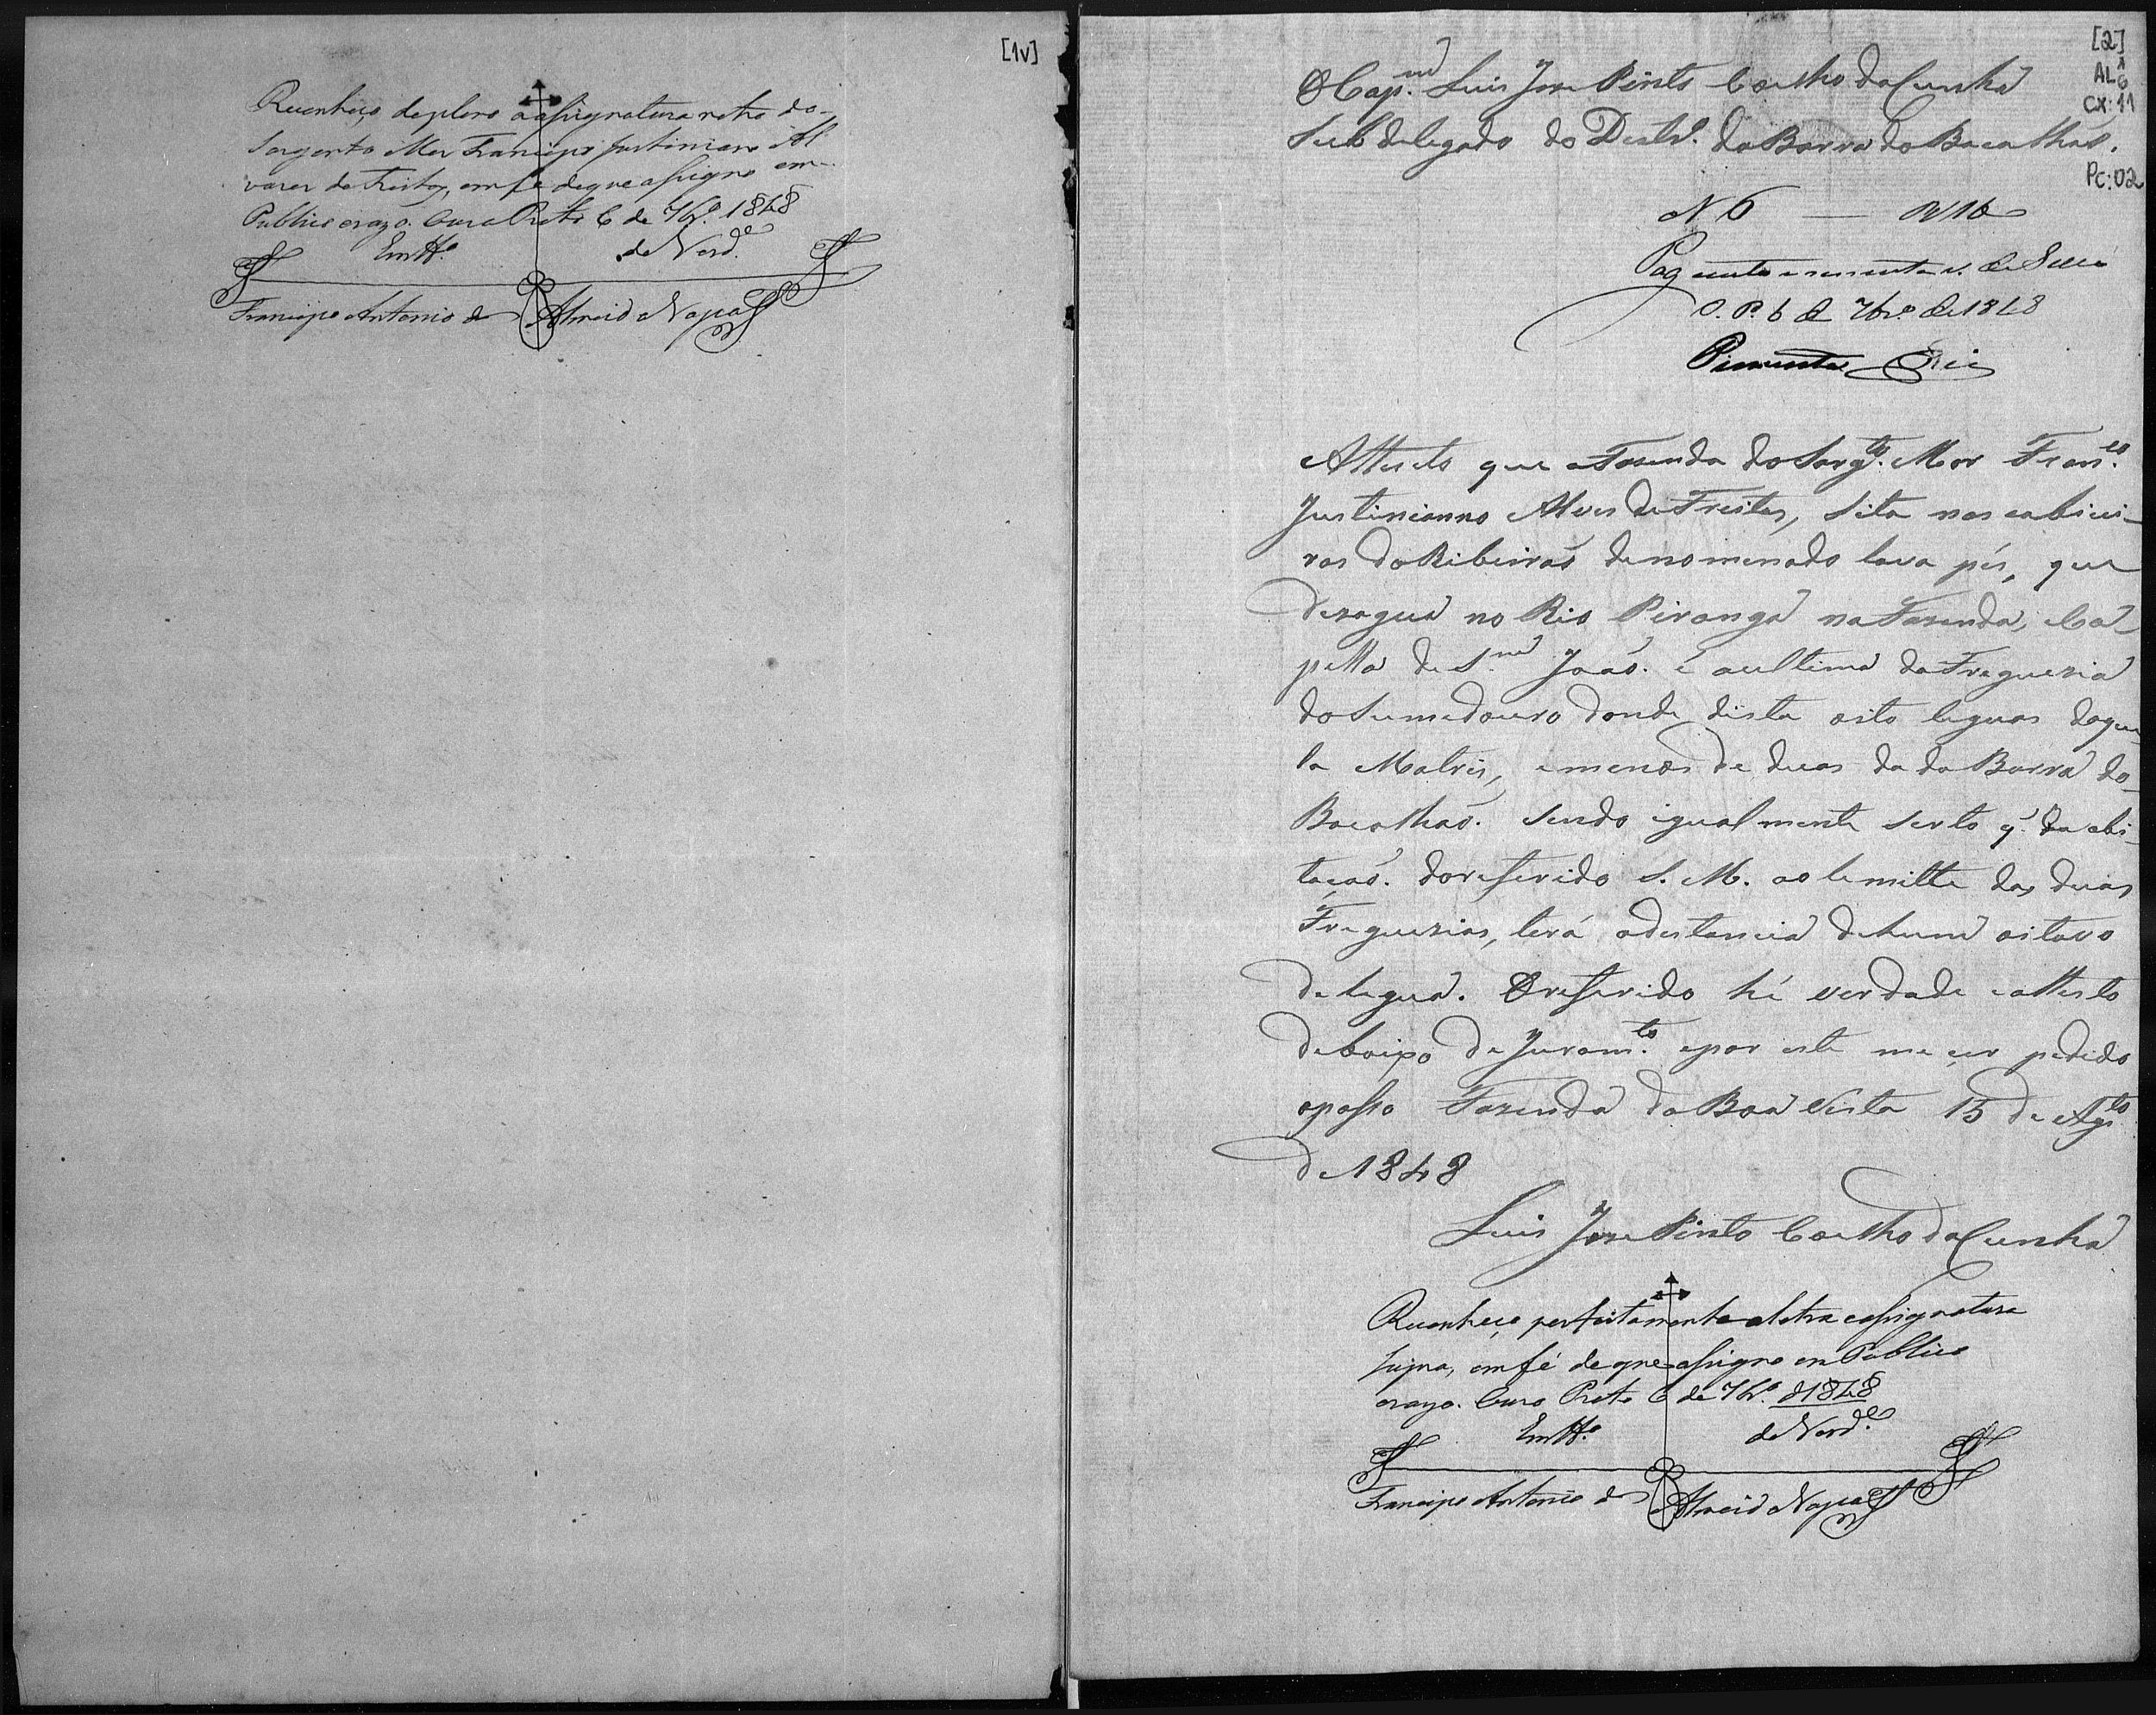 [1v]
Reconheço de plano a assignatura retro do
Sargento Mor Francisco Justiniano Al
vares de Freitas, em fé de que assigno em
Publico e razo. Ouro Preto 6 de 7br.º 1848
Em tt.º de Verd.e
Francisco Antonio de Almeid
[2]
AL
CX: 11
PC: 02
O Cap.m Luis Jose Pinto Coelho da Cunha
Subdelegado do Destr.º da Barra do Bacalhao.
N. 6 — 160
Pag cento e sessenta r. de Sello
O. P. 6 de 7br.º de 1848
Pimenta
Attesto que a Fasenda do Sarg.to Mor Fran.co
Justinianno Alves de Freitas, sita nas cabicei-
ras do Ribeirão denomenado lava pés, que
desagua no Rio Piranga na Fasenda, Ca-
pella de S.m João. é a ultima da Freguesia
do Sumedouro donde dista oito leguas daque-
la Matris, e menos de duas da da Barra do
Bacalhao. Sendo igualmente serto q. da abi-
tação. do referido S. M. ao lemitte das duas
Freguesias, terá a destancia de hum oitavo
de legua. O referido hé verdade e attesto
debaixo de Juram.to e por este me ser pedido
o passo Fazenda da Boa Vista 15 de Ag.to
de 1848
Luis Jose Pinto Coelho da Cunha
Reconheço perfeitamente a letra e assignatura
supra, em fé de que assigno em Publico
e razo. Ouro Preto 6 de 7br.º d 1848
Em tt.º de Verd.e
Francisco Antonio de Almeid